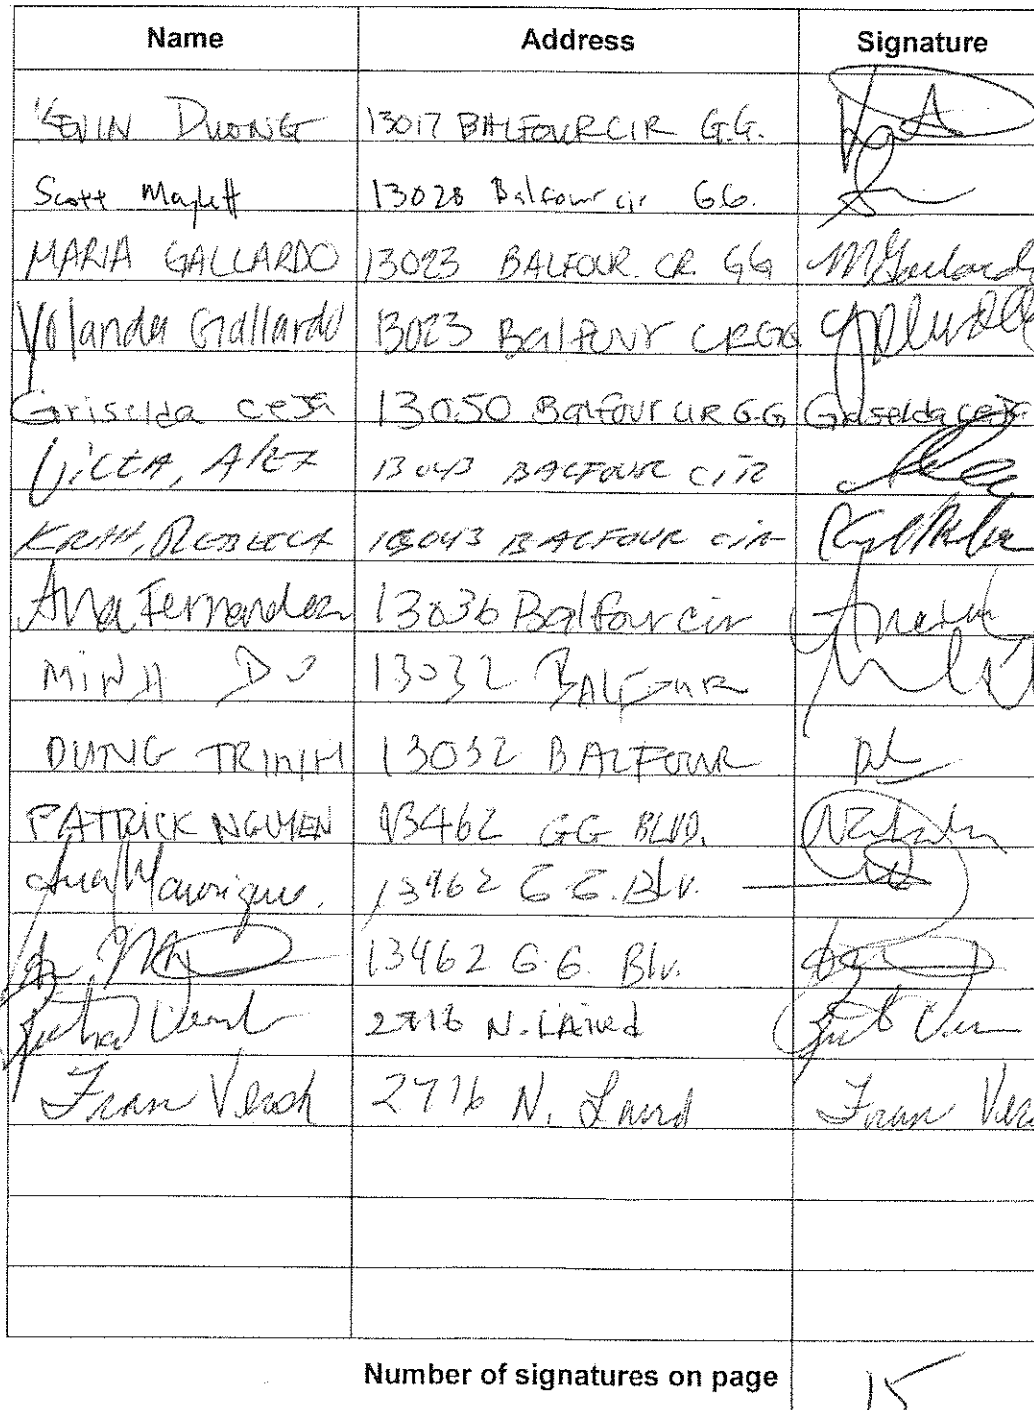 Name Address Signature
KEVIN DUONG 13017 BALFOUR CIR G.G.
Scott Maylett 13028 Balfour cir G.G.
MARIA GALLARDO 13023 BALFOUR. CR GG MGallardo
Yolanda Gallardo 13023 Balfour CR GG
Griselda ceja 13050 Balfour CIR G.G Griselda ceja
Villa, Alex 13043 BALFOUR CIR
REBECCA 13043 BALFOUR cir
Ana Fernandez 13036 Balfour cir
MINH DO 13032 BALFOUR
DUNG TRINH 13032 BALFOUR
PATRICK NGUYEN 13462 GG BLVD.
Ana Manriquez. 13462 G.G. Blv.
13462 G.G. Blv.
2716 N. LAIRD
Fran Verch 2716 N. Laird Fran
Number of signatures on page 15